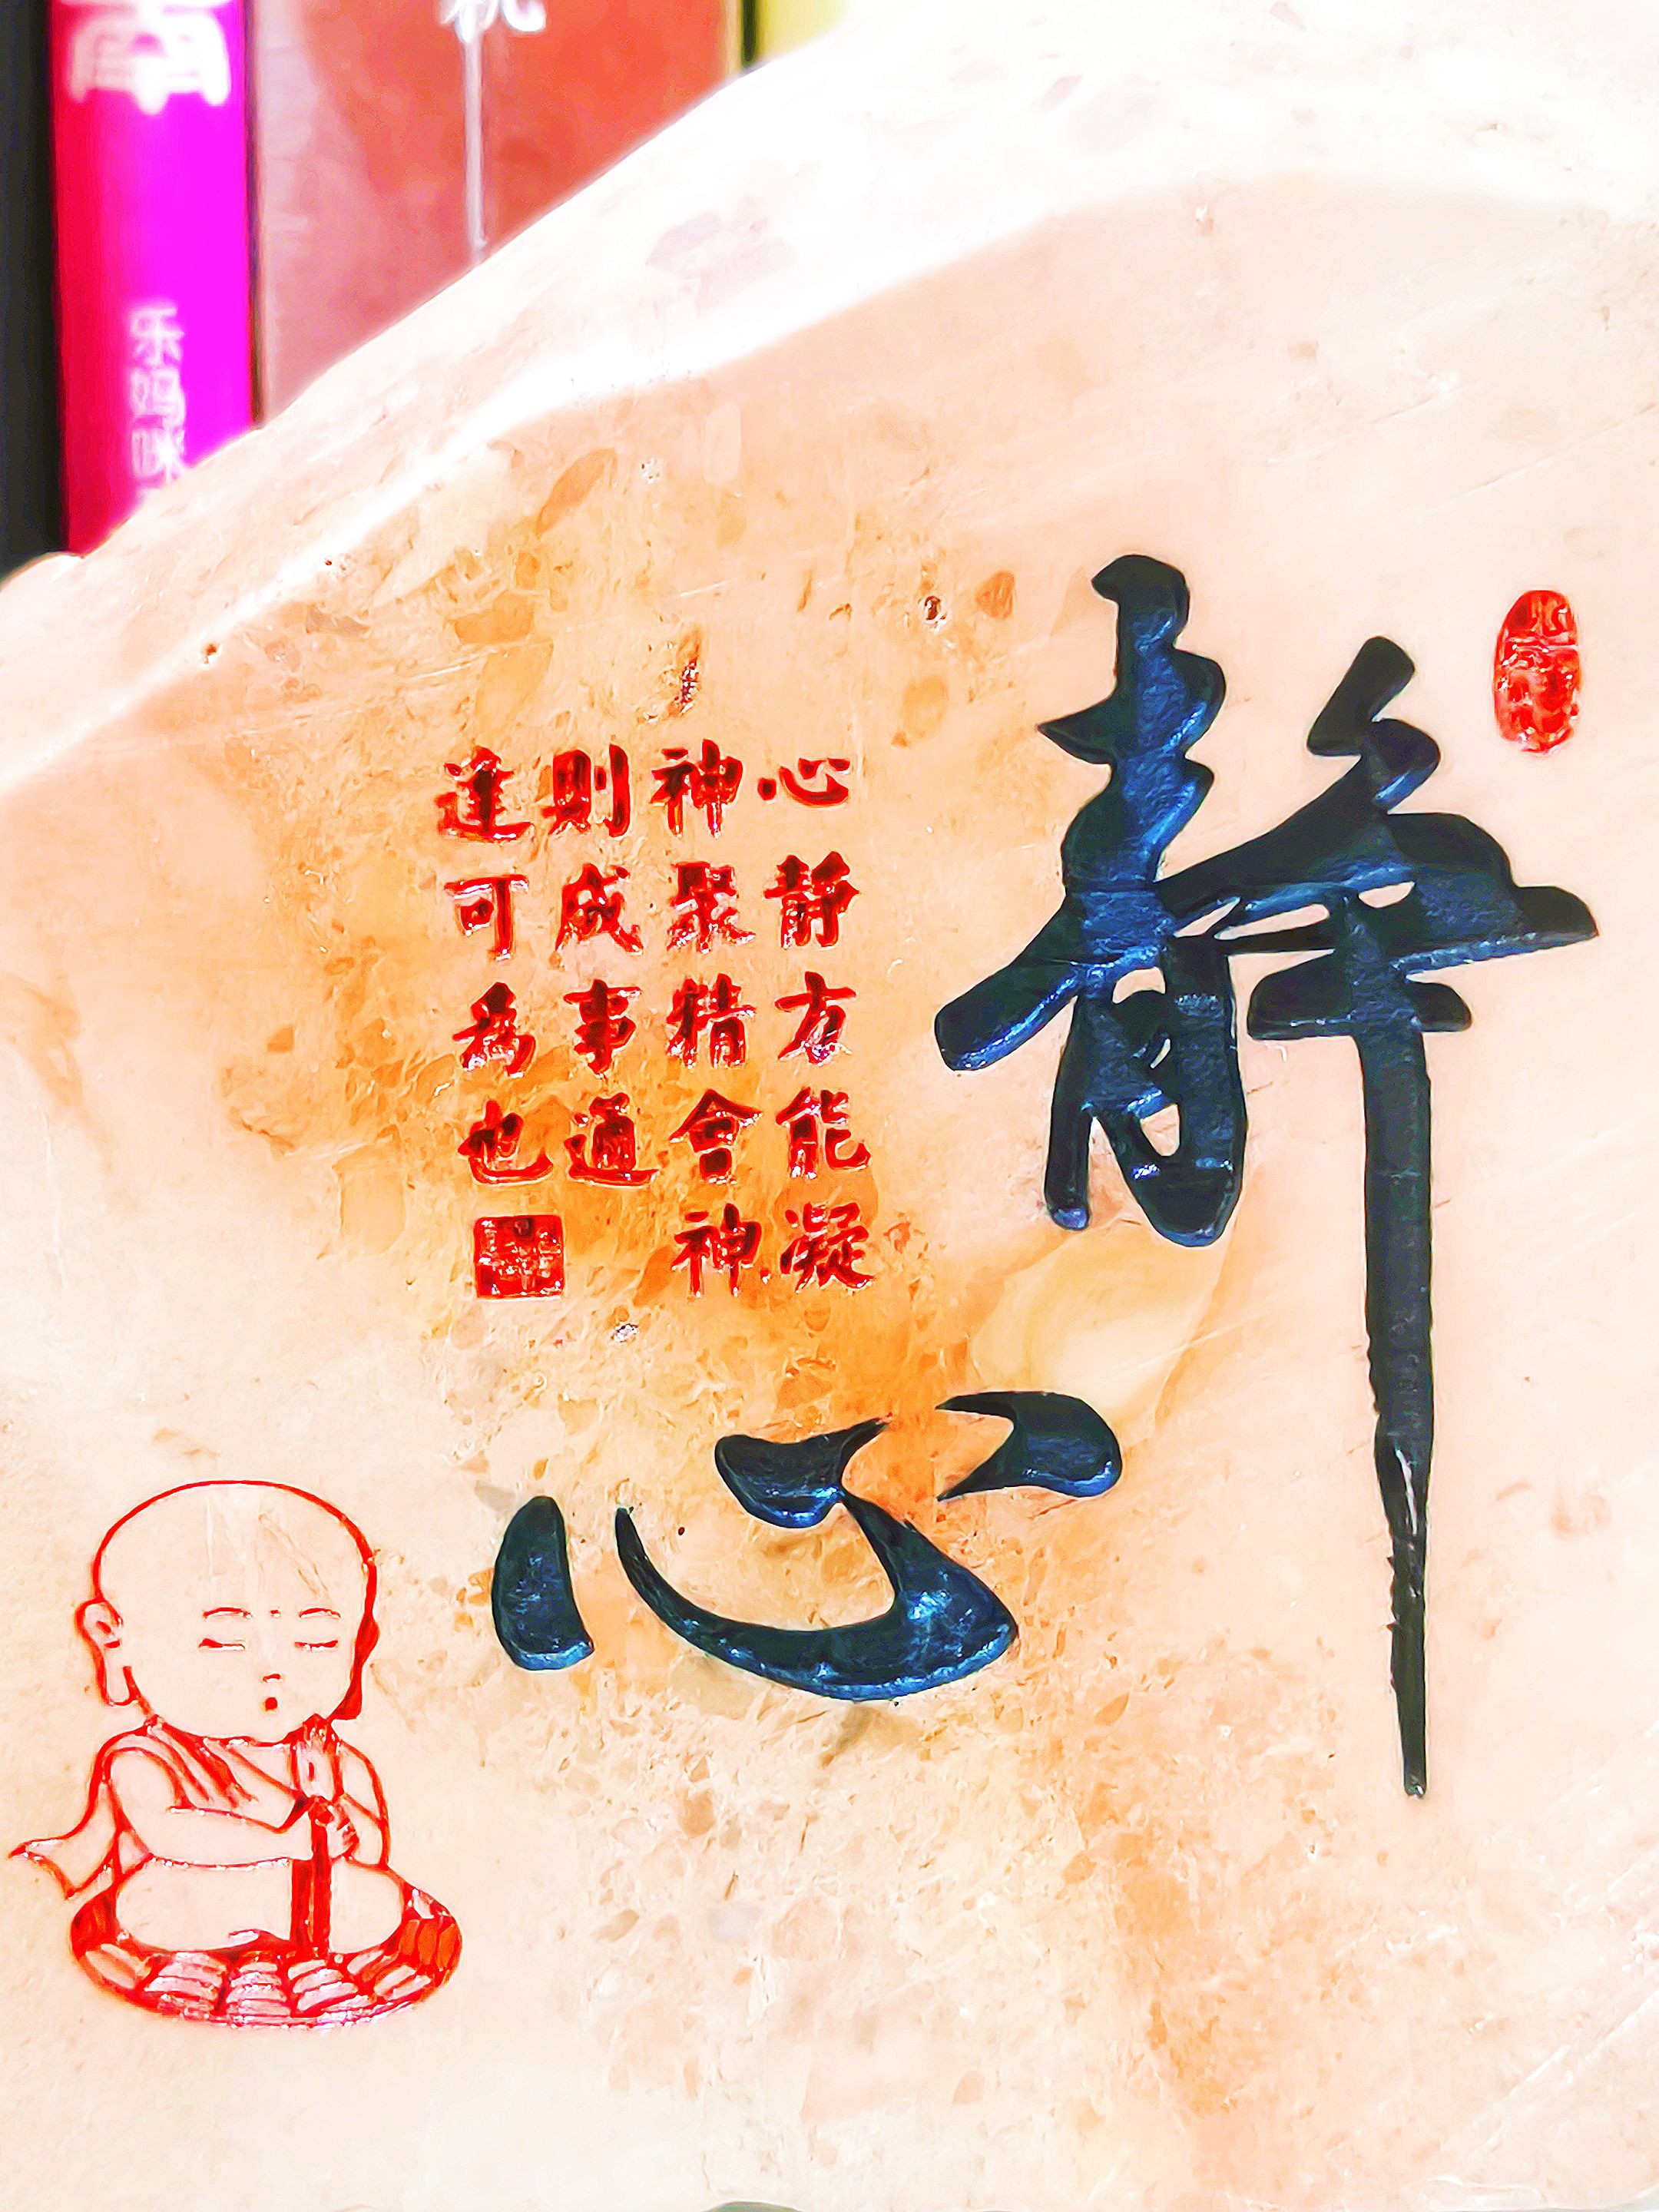 静心
心静方能凝
神聚精合神
则成事通
达可为也
乐妈咪